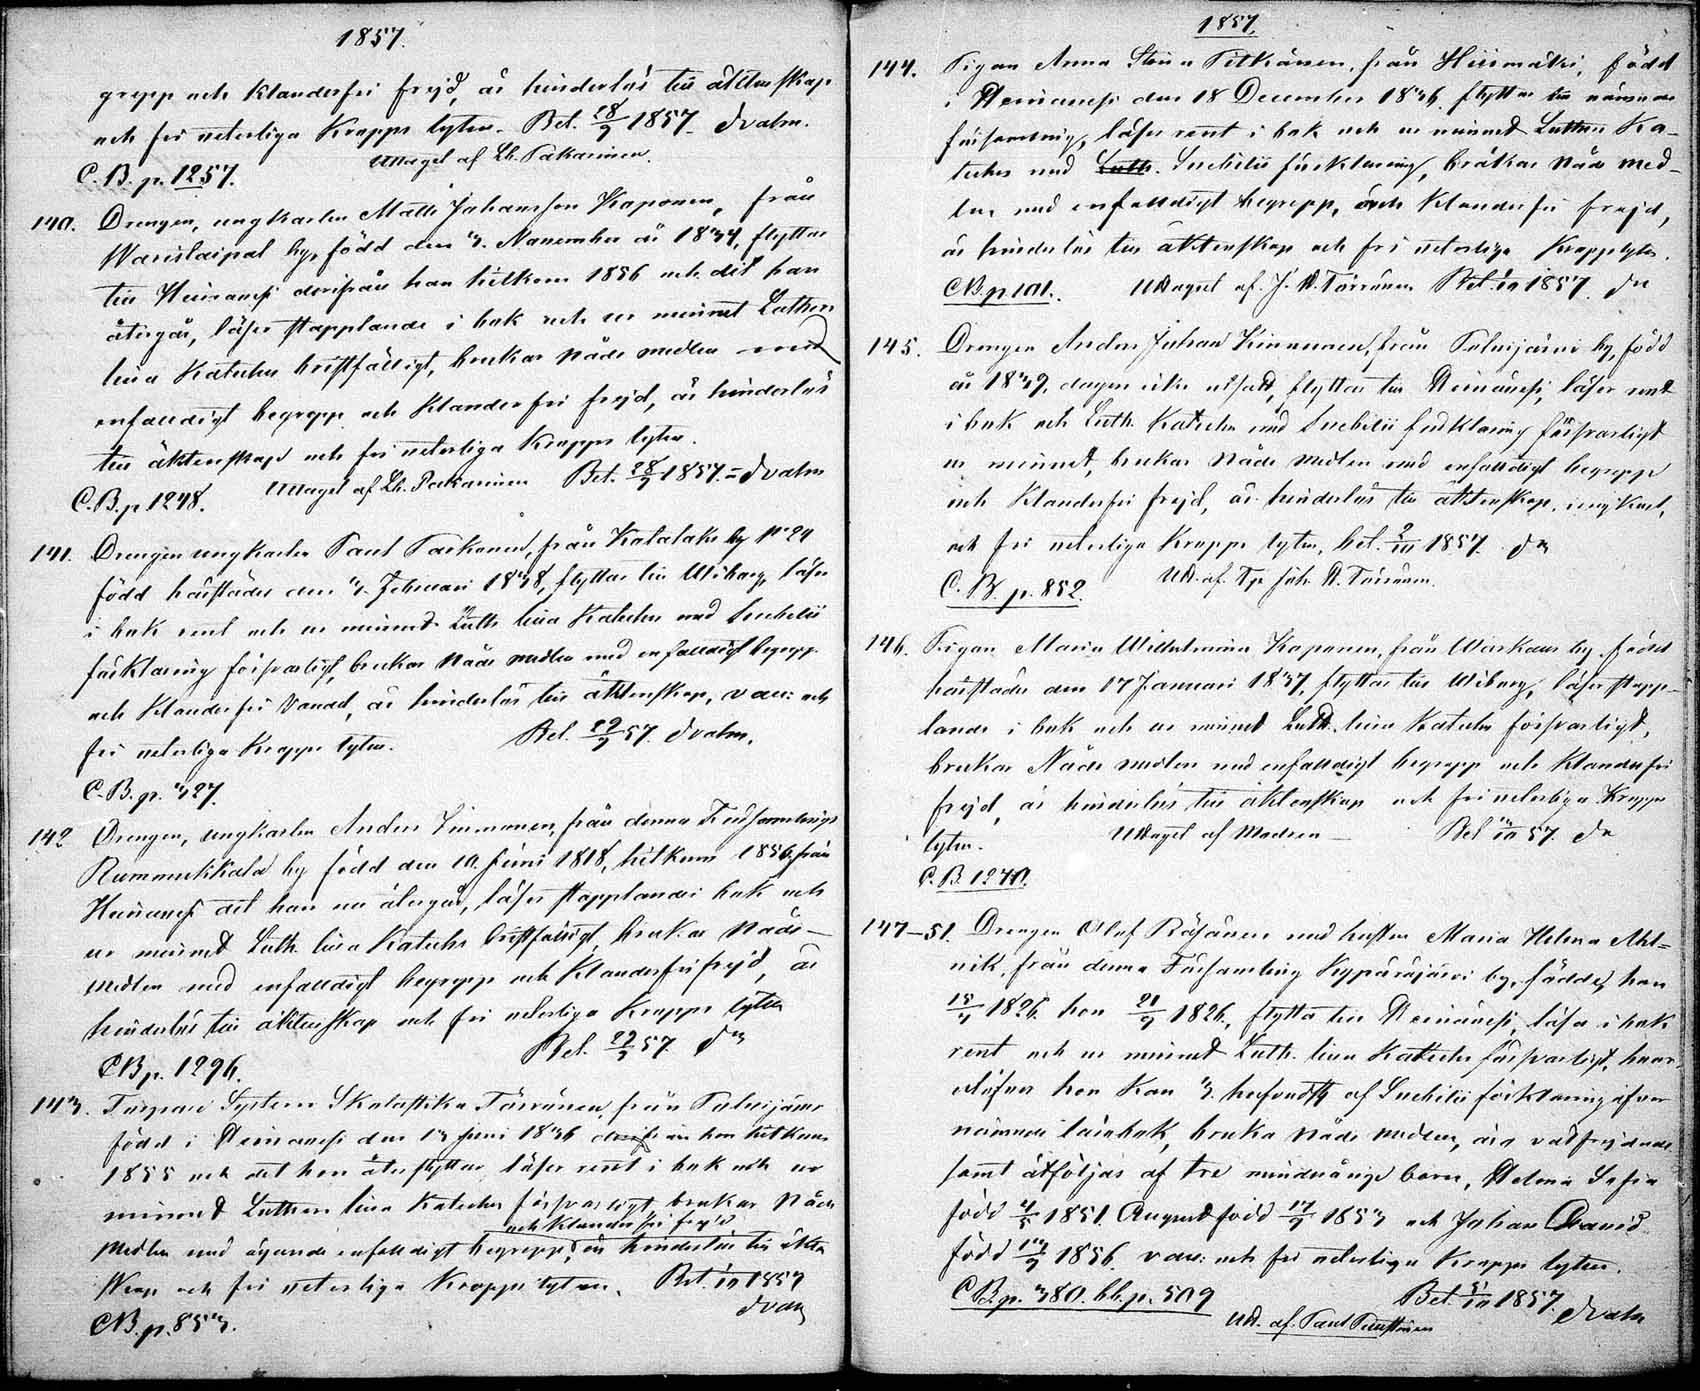 1857.
grepp och klanderfri frejd, är hinderlös till äktenskap
och fri veterliga Kropps lyten. Bet. 28/9 1857. dvalm.
Uttaget af Ph. Pakarinen.
C. B. p. 1257.
140. Drengen, ungkarlen Matts Johansson Kaponen, från
Warislaipal by, född den 3. November år 1834, flyttar
till Heinävesi derifrån han hitkom 1856 och dit han
återgår, läser stapplande i bok och ur minnet Lutheri
lilla Kateches bristfälligt, brukar Nåde medlen med
enfalldigt begrepp och klanderfri frejd, är hinderlös
till äktenskap och fri veterliga Kropps lyten.
Uttaget af Ph. Pakarinen Bet. 28/9 1857. dvalm
C. B. p. 1248.
141. Drengen ungkarlen Paul Parkonen, från Kotalaks by No 24
född härstädes den 3. Februari 1838, flyttar till Wiborg, läser
i bok rent och ur minnet Luth. lilla Kateches med Svebelii
förklaring försvarligt, brukar Nåde medlen med enfalldigt begrepp
och klanderfri vandel, är hinderlös till äktenskap, vacc: och
fri veterliga Kropps lyten. Bet. 29/9 57. dvalm.
C. B. p. 327.
142 Drengen, ungkarlen Anders Immonen, från denna Församlings
Rummukkala by född den 10. Juni 1818, hitkom 1856 från
Heinävesi dit han nu återgår, läser stapplande i bok och
ur minnet Luth. lilla Kateches bristfälligt, brukar Nåde-
medlen med enfalldigt begrepp och klanderfri frejd, är
hinderlös till äktenskap och fri veterliga Kropps lyten
Bet. 29/9 57. dm
CB p. 1296.
143. Torpare Systern Skolastika Törrönen, från Polvijärvi
född i Heinävesi den 13 Juni 1836 hon hitkom
1855 och dit hon återflyttar, läser rent i bok och ur
minnet Lutheri lilla Kateches försvarligt brukar Nåde
och klanderfri frejd
medlen med ägande enfalldigt begrepp, är hinderlös till äkten
skap och fri veterliga Kropps lyten. Bet. 1/10 1857
dvalm
CB. p. 853.
1857.
144. Pigan Anna Stina Pitkänen, från Hiismäki, född
i Heinävesi den 18 December 1836, flyttar till nämnde
församling, läser rent i bok och ur minnet Lutheri Ka-
teches med Luth. Svebilii förklaring, brukar Nåde med-
len med enfalldigt begrepp, och klanderfri frejd,
är hinderlös till äktenskap och fri veterliga Kroppslyten.
CB. p. 101. Uttaget af J. H. Törrönen Bet. 1/10 1857 dm
145. Drengen Anders Johan Kinnunen, från Polvijärvi by, född
år 1839, dagen icke utsatt, flyttar till Heinävesi, läser rent
i bok och Luth. Kateches med Svebilii förklaring försvarligt
ur minnet, brukar Nåde medlen med enfalldigt begrepp
och klanderfri frejd, är hinderlös till äktenskap, ungkarl,
och fri veterliga Kropps lyten, bet. 2/10 1857. dm
Utt. af Tp Joh. H. Törrönen.
C. B. p. 852.
146. Pigan Maria Wilhelmina Kaponen, från Warkaus by född
härstädes den 17 Januari 1837, flyttar till Wiborg, läser stapp-
lande i bok och ur minnet Luth. lilla Kateches försvarligt,
brukar Nåde medlen med enfalldigt begrepp och klanderfri
frejd, är hinderlös till äktenskap och fri veterliga Kropps
lyten. Uttaget af Modren Bet 3/10 57. dm
C. B. 1270.
147-51. Drengen Olof Räsänen med hustru Maria Helena Ahl-
nik, från denna Församling Kypäräjärvi by, födde, han
1826. hon 21/9 1826, flytta till Heinävesi, läsa i bok
rent och ur minnet Luth. lilla Kateches försvarligt, hvar
utöfver hon kan 3. hufvudst. af Svebilii förklaring öfver
nämnde lärobok, bruka Nåde medlen, äro välfrejdade
samt åtföljas af tre minderårige barn, Helena Sofia
född 4/5 1851. August född 17/9 1853 och Johan David
född 1856. vacc: och fri veterliga Kropps lyten.
C B. p. 380. bb. p. 509 Bet. 5/10 1857. dvalm
Utt. af Paul Puustinen